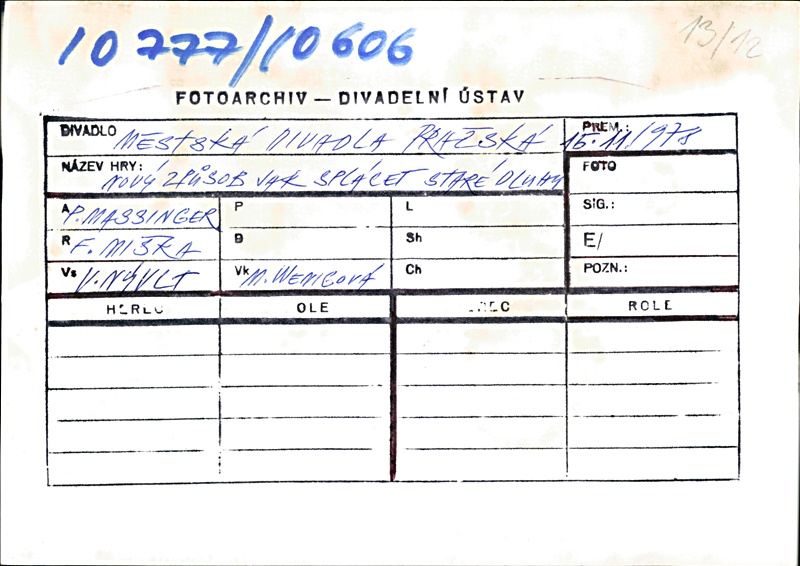 10 777/10 606
13/12
FOTOARCHIV — DIVADELNÍ ÚSTAV
DIVADLO MĚSTSKÁ DIVADLA PRAŽSKÁ PREM.: 15.11.1978
NÁZEV HRY: NOVÝ ZPŮSOB JAK SPLÁCET STARÉ DLUHY FOTO
A P. MASSINGER P L SIG.:
R F. MIŠKA B Sh E/
Vs V. NÝVLT Vk M. WENIGOVÁ Ch POZN.:
HEREC OLE EC ROLE